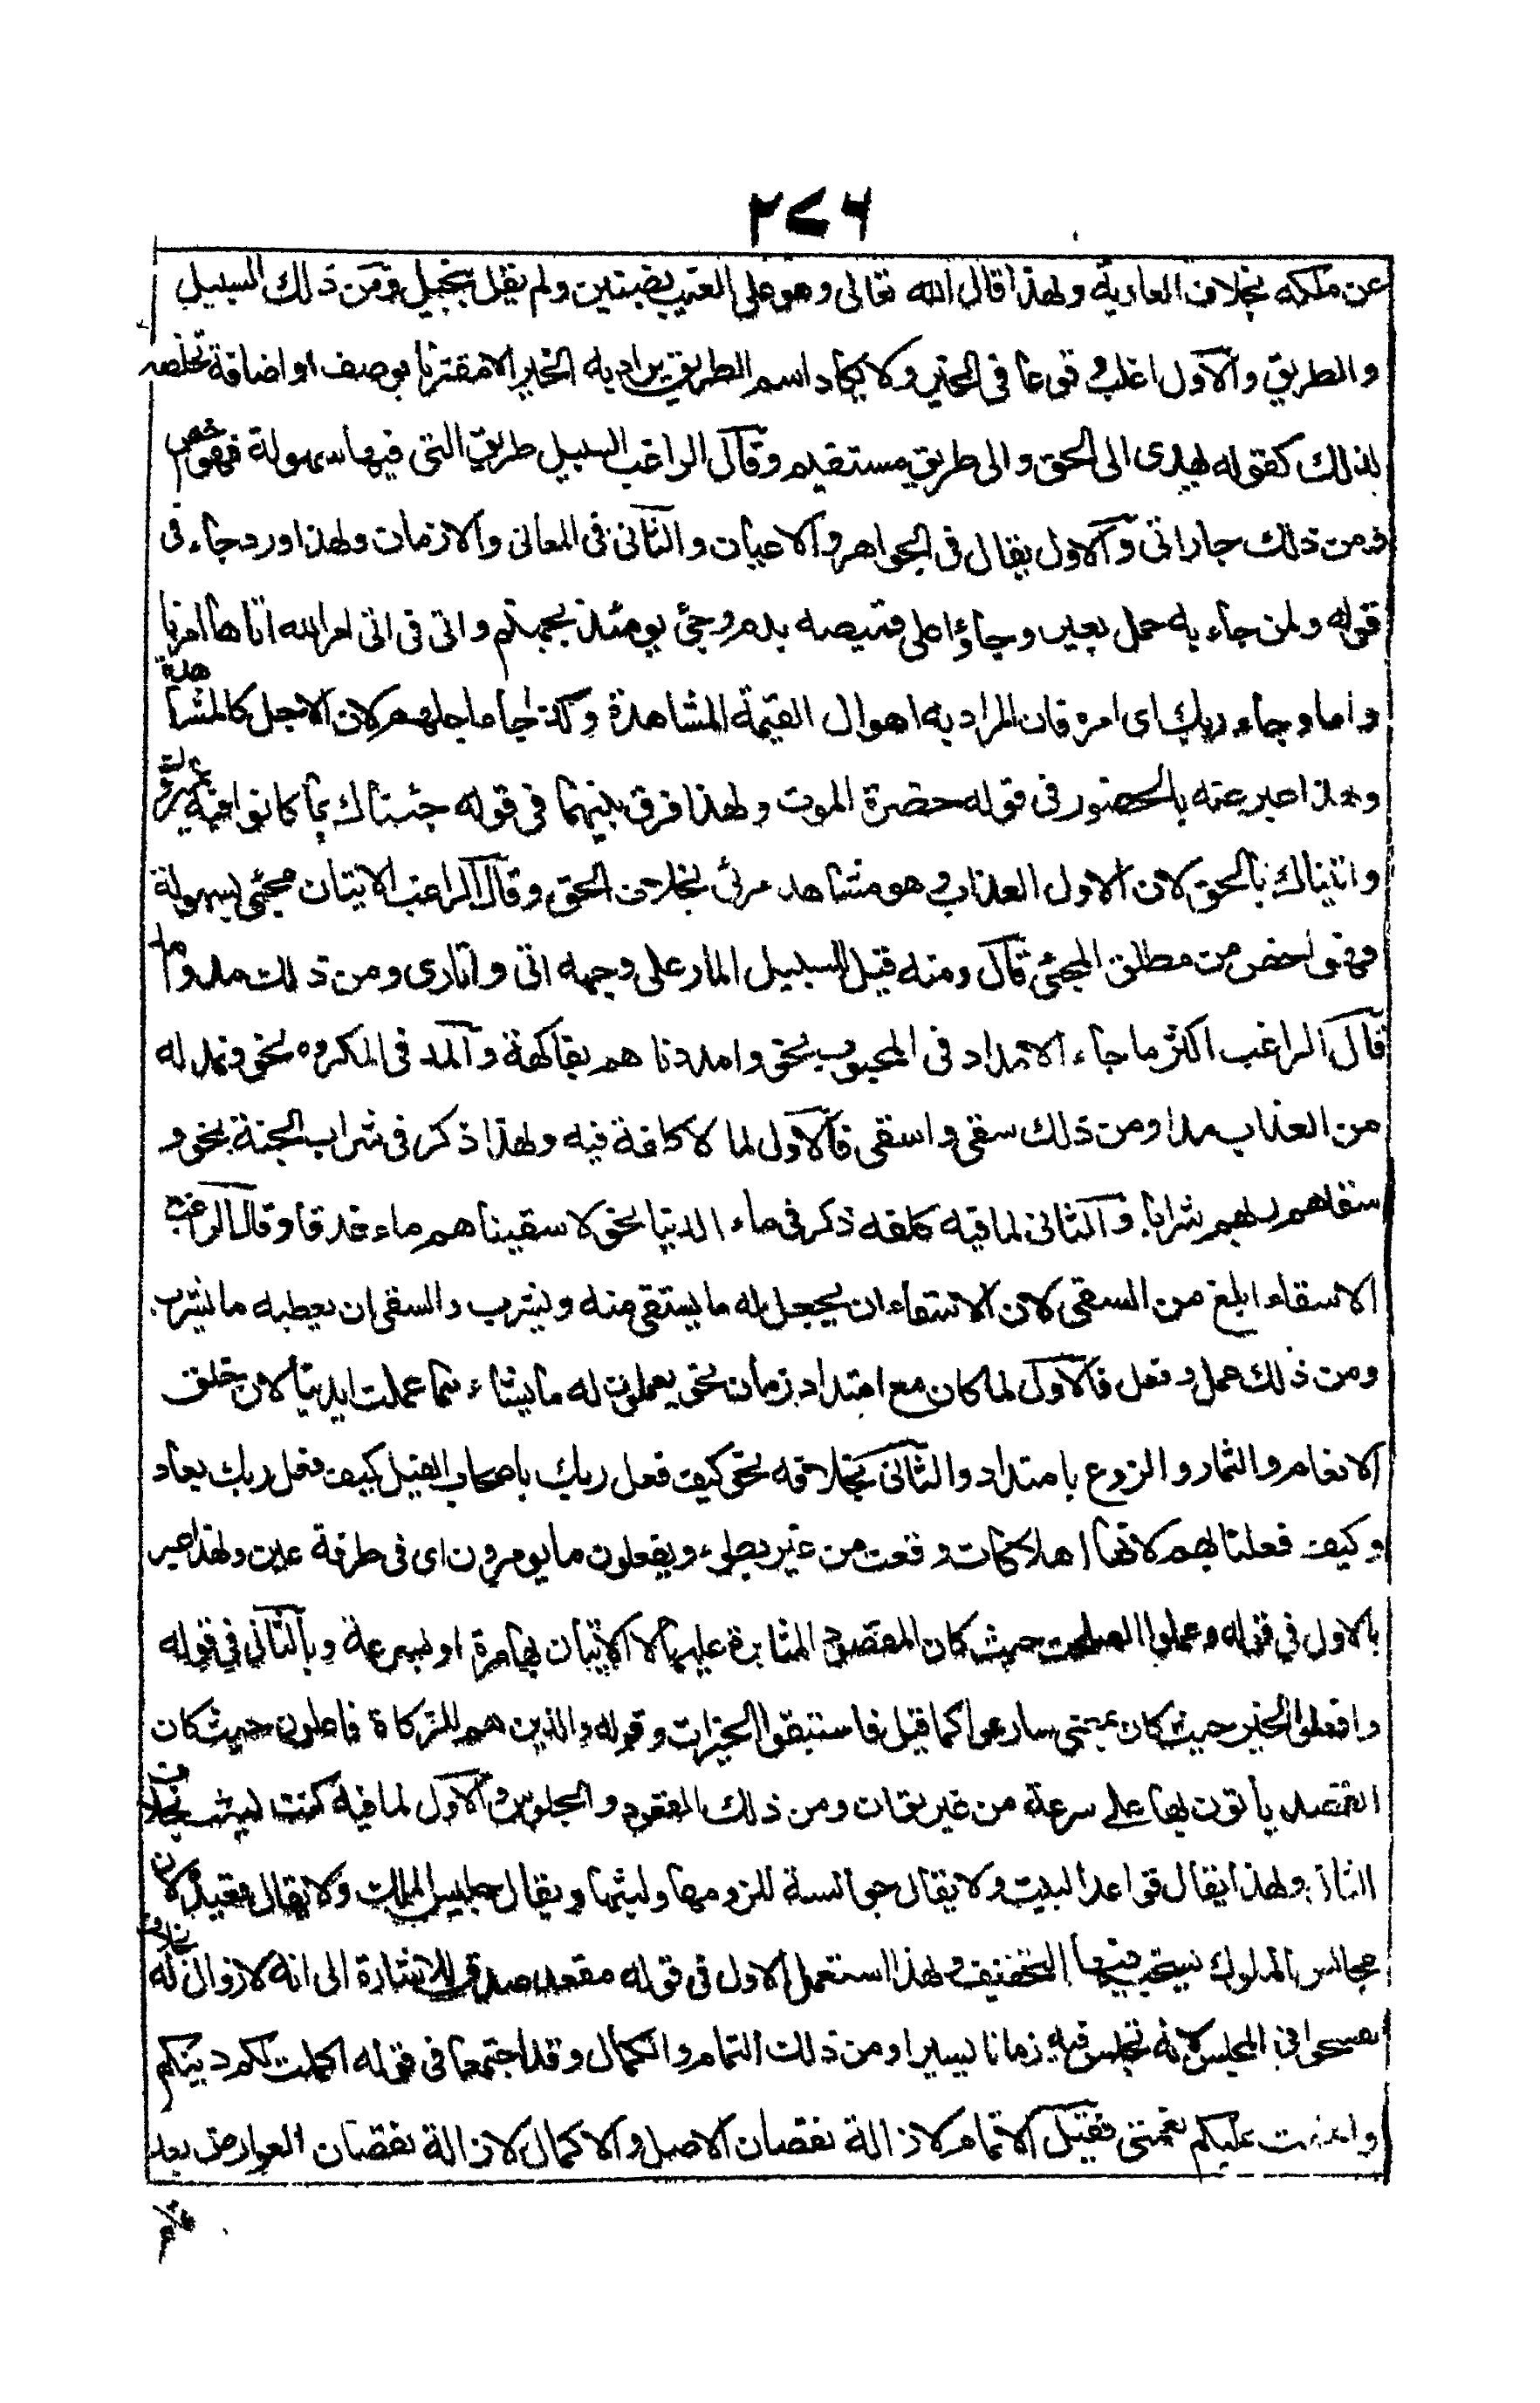 ٢٧٦
عن ملكه بخلاف العارية ولهذا قال الله تعالى وهو على الغيب بضنين ولم يقل ببخيل ومن ذلك السبيل
والطريق والاول اغلب وقوعا فى الخير ولا يكاد اسم الطريق يراد به الخير الا مقترنا بوصف او اضافة تخلصه
لذلك كقوله يهدى الى الحق والى طريق مستقيم وقال الراغب السبيل طريق التى فيها سهولة فهو اخص
ومن ذلك جاء اتى والاول يقال فى الجواهر والاعيان والثانى فى المعانى والازمان ولهذا ورد جاء فى
قوله ولمن جاء به حمل بعير وجاؤا على قميصه بدم وجئ يومئذ بجهنم واتى فى اتى امر الله اتاها امرنا
واما وجاء ربك اى امره فان المراد به اهوال القيمة المشاهدة وكذا جاء اجلهم لان الاجل كالمشاهدة
ولهذا عبر عنه بالحضور فى قوله حضرة الموت ولهذا فرق بينهما فى قوله جئناك بما كانوا فيه يمترون
واتيناك بالحق لان الاول العذاب وهو مشاهد مرئى بخلاف الحق وقال الراغب الاتيان مجئى بسهولة
فهو اخص من مطلق المجئى قال ومنه قيل للسبيل المار على وجهه اتى واتاوى ومن ذلك مد وامد
قال الراغب اكثر ما جاء الامداد فى المحبوب نحو وامددناهم بفاكهة والمد فى المكروه نحو ونمد له
من العذاب مدا ومن ذلك سقى واسقى فالاول لما لا كلفة فيه ولهذا ذكر فى شراب الجنة نحو و
سقاهم ربهم شرابا والثانى لما فيه كلفه ذكر فى ماء الدنيا نحو لاسقيناهم ماء غدقا وقال الراغب
الاسقاء ابلغ من السقى لان الاسقاء ان يجعل له ما يستقى منه ويشرب والسقى ان يعطيه ما يشرب
ومن ذلك عمل وفعل فالاول لما كان مع امتداد زمان نحو يعملون له ما يشاء مما عملت ايدينا لان خلق
الانعام والثمار والزروع بامتداد والثانى بخلافه نحو كيف فعل ربك باصحاب الفيل كيف فعل ربك بعاد
وكيف فعلنا بهم لانها اهلاكات وقعت من غير بطوء ويفعلون ما يومرون اى فى طرفة عين ولهذا عبر
بالاول فى قوله وعملوا الصلحت حيث كان المقصود المثابرة عليها لا الاتيان بها مرة او بسرعة وبالثانى فى قوله
وافعلوا الخير حيث كان بمعنى سارعوا كما قيل فاستبقوا الخيرات وقوله والذين هم للزكاة فاعلون حيث كان
القصد ياتون بها على سرعة من غير توان ومن ذلك القعود والجلوس والاول لما فيه لبث بخلاف
الثانى ولهذا يقال قواعد البيت ولا يقال جوالسه للزومها ولبثها ويقال جليس الملك ولا يقال قعيده لان
مجالس الملوك يستحب فيها التخفيف ولهذا استعمل الاول فى قوله مقعد صدق للاشارة الى انه لا زوال له بخلاف
تفسحوا فى المجلس لانه تجلس فيه زمانا يسيرا ومن ذلك التمام والكمال وقد اجتمعا فى قوله اكملت لكم دينكم
واتممت عليكم نعمتى فقيل الاتمام لازالة نقصان الاصل والاكمال لازالة نقصان العوارض بعد